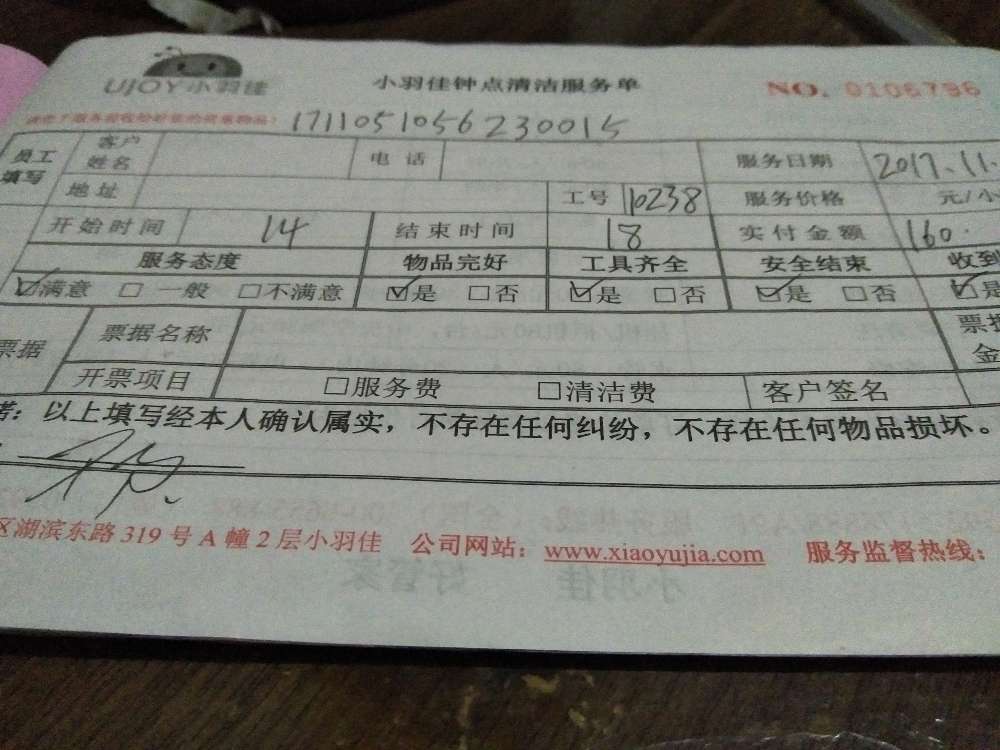 UJOY小羽佳 小羽佳钟点清洁服务单 NO. 0106796
1711051056230015
员工填写 客户姓名 电话 服务日期 2017.11.
地址 工号 10238 服务价格 元/小
开始时间 14 结束时间 18 实付金额 160.
服务态度 物品完好 工具齐全 安全结束 收到
☑满意 □一般 □不满意 ☑是 □否 ☑是 □否 ☑是 □否 ☑是
票据 票据名称 票据金
开票项目 □服务费 □清洁费 客户签名
诺：以上填写经本人确认属实，不存在任何纠纷，不存在任何物品损坏。
区湖滨东路319号A幢2层小羽佳 公司网站：www.xiaoyujia.com 服务监督热线：